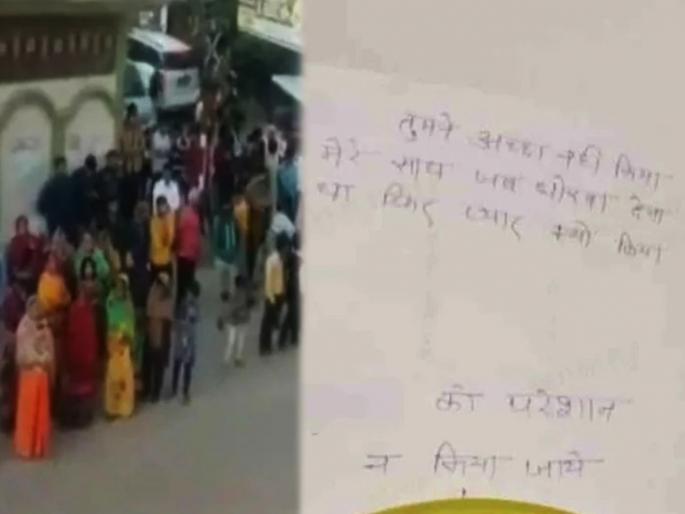 तुमने अच्छा नही किया
मेरे साथ जब धोखा देना
था फिर प्यार क्यो किया
को परेशान
न किया जाये